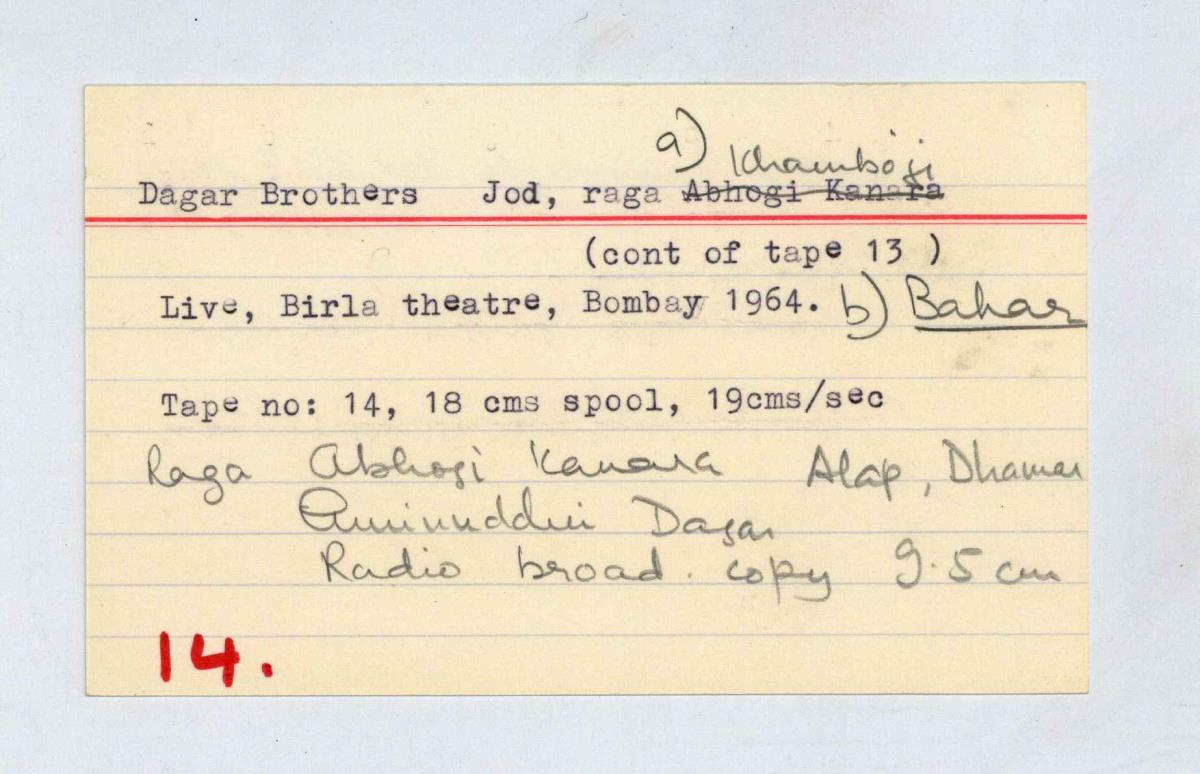 a) Khamboji
Dagar Brothers Jod, raga Abhogi Kanara
(cont of tape 13 )
Live, Birla theatre, Bombay 1964. b) Bahar
Tape no: 14, 18 cms spool, 19cms/sec
Raga Abhogi Kanara Alap, Dhamar
Aminuddin Dagar
Radio broad. copy 9.5 cm
14.